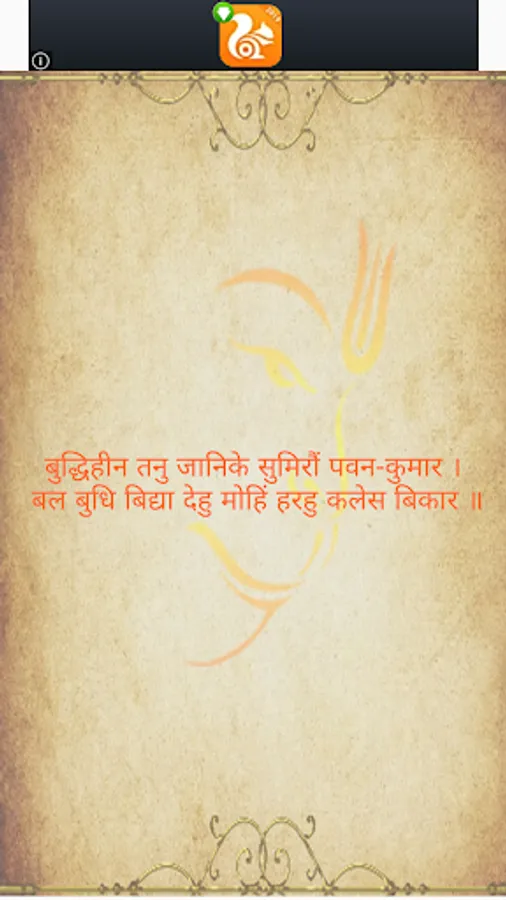 बुद्धिहीन तनु जानिके सुमिरौं पवन-कुमार ।
बल बुधि बिद्या देहु मोहिं हरहु कलेस बिकार ॥